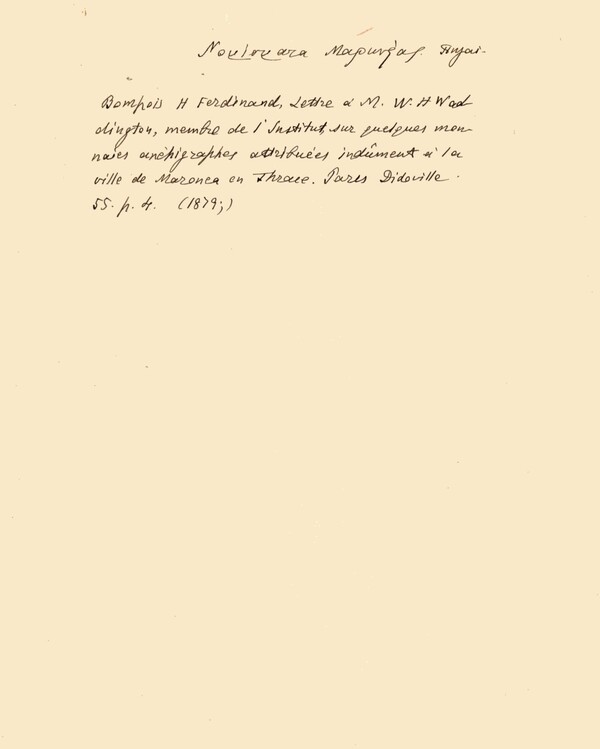 Νομίσματα Μαρωνείας. Πηγαί-
Bompois H Ferdinand, Lettre à M. W. H Wad
dington, membre de l'Institut, sur quelques mon-
naies anéhigraphes attribuées indûment à la
ville de Maronea en Thrace. Pares Didoville.
55. p. 4. (1879;)